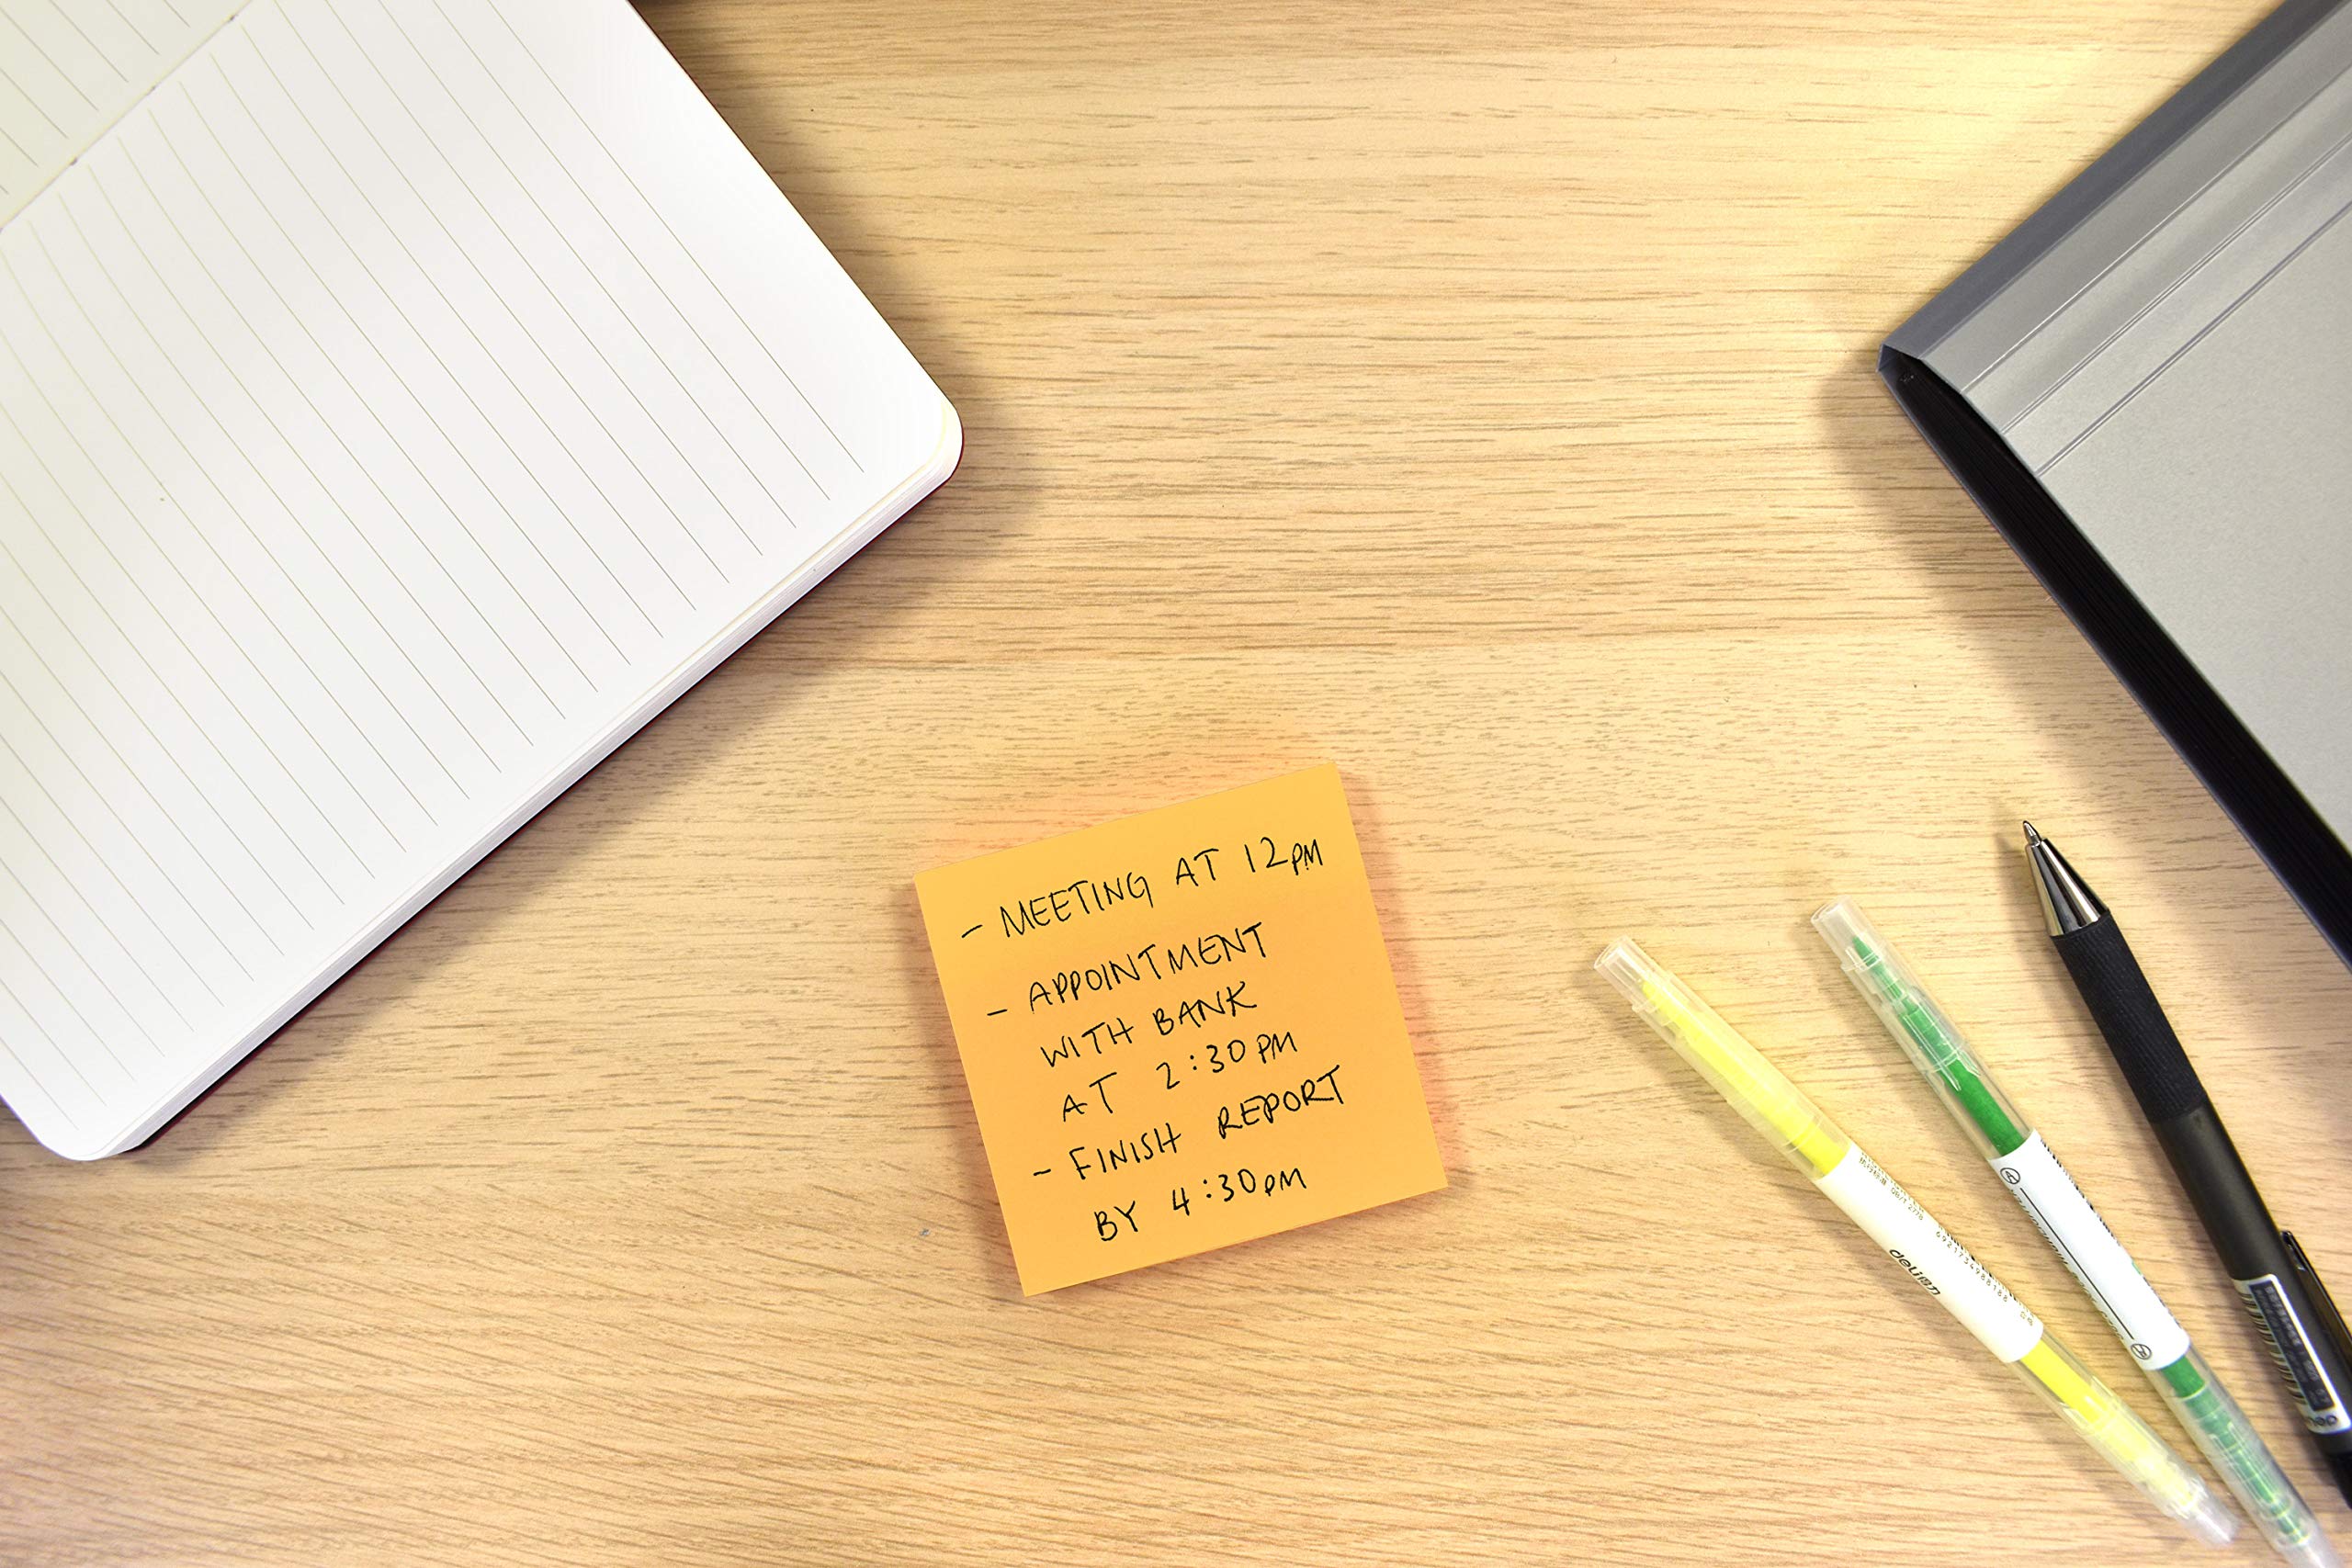 - MEETING AT 12PM
- APPOINTMENT
WITH BANK
AT 2:30PM
- FINISH REPORT
BY 4:30PM
deli